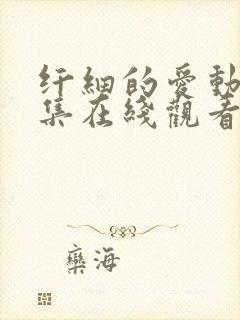 纤細的愛動
集在綫觀看
欒海